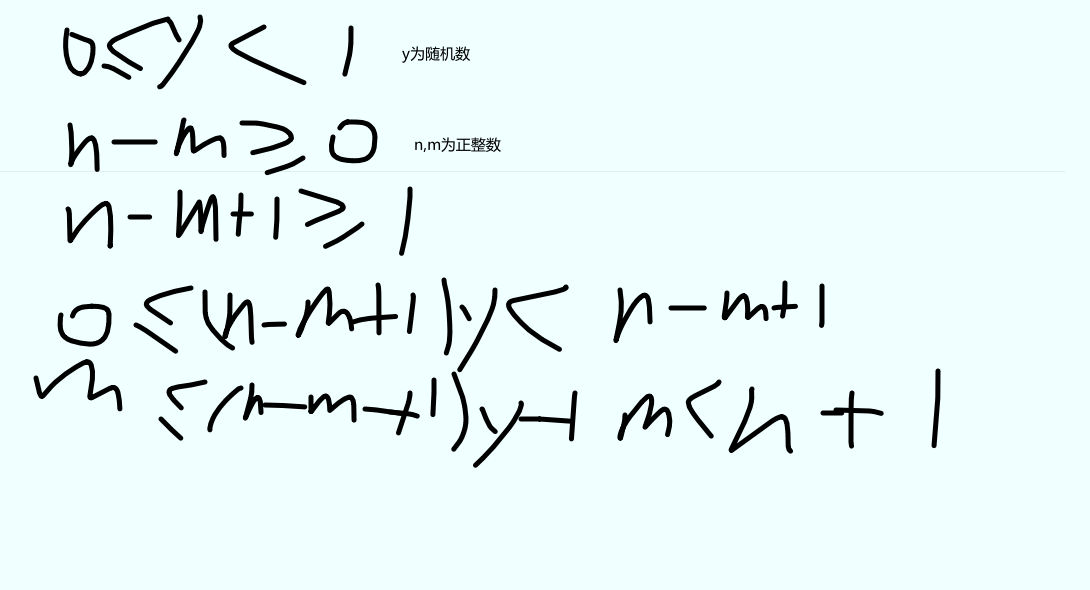 0≤y<1 y为随机数
n-m≥0 n,m为正整数
n-m+1≥1
0≤(n-m+1)y<n-m+1
m≤(n-m+1)y+m<n+1